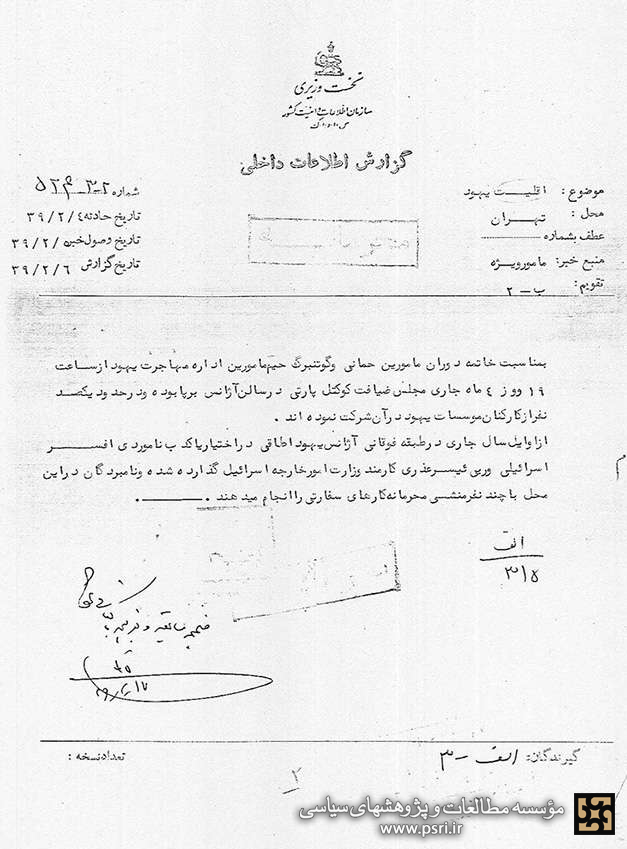 نخست وزیری
سازمان اطلاعات و امنیت کشور
س.ا.و.ا.ک
گزارش اطلاعات داخلی
موضوع : اقلیت یهود
محل : تهران
عطف بشماره
منبع خبر: مامور ویژه
تقویم: ب - ۲
شماره
تاریخ حادثه ۳۹/۲/٤
تاریخ وصول خبر ۳۹/۲/۵
تاریخ گزارش ۳۹/۲/۶
بمناسبت خاتمه دوران مامورین حمانی وگوتنبرگ حیم مامورین اداره مهاجرت یهود از ساعت
۱۹ روز ٤ ماه جاری مجلس ضیافت کوکتل پارتی در سالن آژانس برپا بوده و در حدود یکصد
نفر از کارکنان موسسات یهود در آن شرکت نموده اند .
از اوایل سال جاری در طبقه فوقانی آژانس یهود اطاقی در اختیار یاکدب ناموردی افسر
اسرائیلی وربی ئیسرعذری کارمند وزارت امور خارجه اسرائیل گذارده شده و نامبردگان در این
محل با چند نفر منشی محرمانه کارهای سفارتی را انجام میدهند .
الف
۳۱۵
م
گیرندگان: الف - ۳
تعداد نسخه :
۲
مؤسسه مطالعات و پژوهشهای سیاسی
www.psri.ir